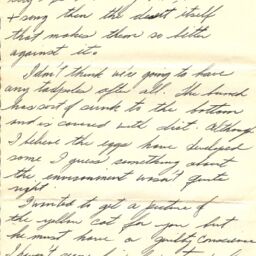 & song then the desert itself
that makes them so bitter
against it.
I don't think we're going to have
any tadpoles after all. The bunch
has sort of sunk to the bottom
and is covered with dirt. Although
I believe the eggs have developed
some I guess something about
the environment wasn't quite
right.
I wanted to get a picture of
the yellow cat for you but
he must have a guilty conscience
I haven't